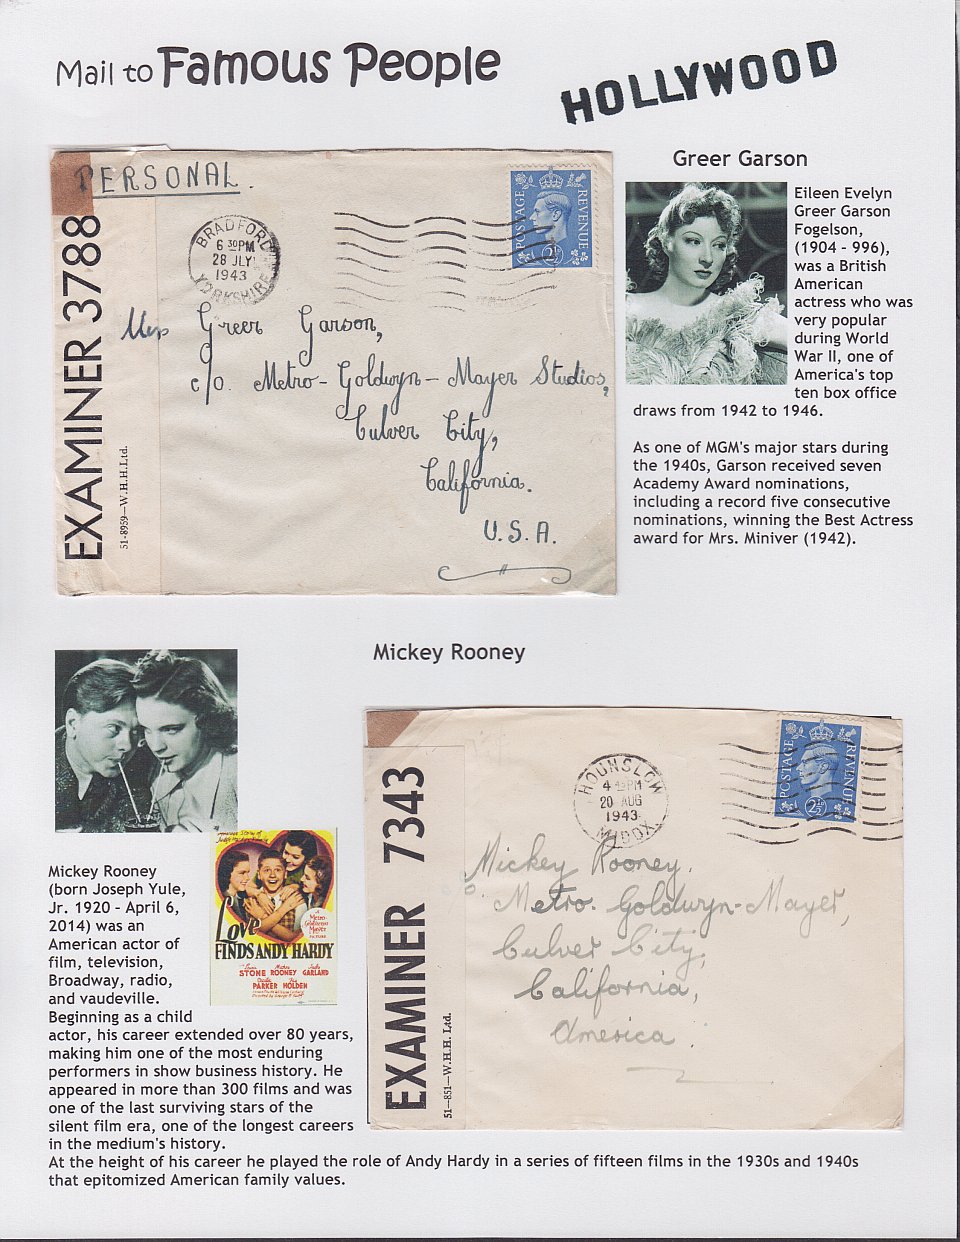 Mail to Famous People
HOLLYWOOD
PERSONAL.
EXAMINER 3788
51-8959—W.H.H.Ltd.
BRADFORD
6 30PM
28 JLY
1943
YORKSHIRE
POSTAGE
REVENUE
2½
Miss Greer Garson,
c/o. Metro-Goldwyn-Mayer Studios,
Culver City,
California.
U.S.A.
Greer Garson
Eileen Evelyn
Greer Garson
Fogelson,
(1904 - 996),
was a British
American
actress who was
very popular
during World
War II, one of
America's top
ten box office
draws from 1942 to 1946.
As one of MGM's major stars during
the 1940s, Garson received seven
Academy Award nominations,
including a record five consecutive
nominations, winning the Best Actress
award for Mrs. Miniver (1942).
Mickey Rooney
EXAMINER 7343
51—851—W.H.H. Ltd.
HOUNSLOW
PM
20 AUG
1943
MIDDX
POSTAGE
REVENUE
2½
Mickey Rooney,
c/o. Metro. Goldwyn-Mayer,
Culver City,
California,
America.
Love
FINDS ANDY HARDY
A
Metro
Goldwyn
Mayer
PICTURE
Lewis Mickey Judy
STONE ROONEY GARLAND
Cecilia Fay
PARKER HOLDEN
Mickey Rooney
(born Joseph Yule,
Jr. 1920 - April 6,
2014) was an
American actor of
film, television,
Broadway, radio,
and vaudeville.
Beginning as a child
actor, his career extended over 80 years,
making him one of the most enduring
performers in show business history. He
appeared in more than 300 films and was
one of the last surviving stars of the
silent film era, one of the longest careers
in the medium's history.
At the height of his career he played the role of Andy Hardy in a series of fifteen films in the 1930s and 1940s
that epitomized American family values.